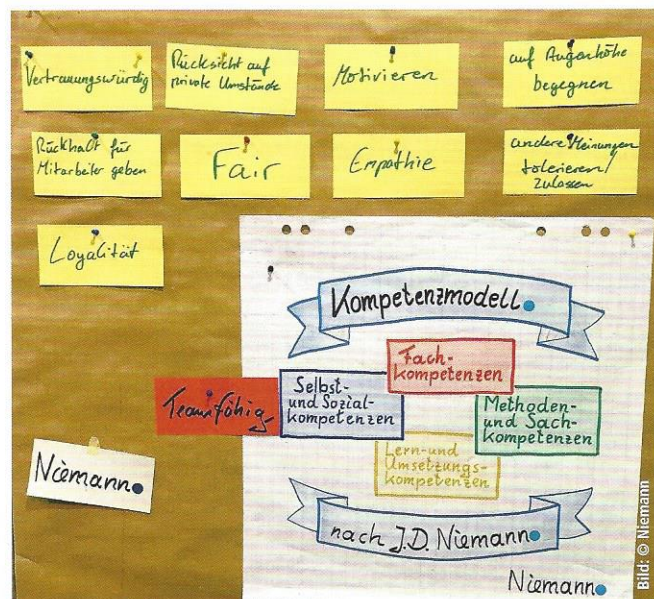 Vertrauungswürdig
Rücksicht auf
private Umstände
Motivieren
auf Augenhöhe
begegnen
Rückhalt für
Mitarbeiter geben
Fair
Empathie
andere Meinungen
tolerieren/
zulassen
Loyalität
Kompetenzmodell
Fach-
kompetenzen
Teamfähig
Selbst-
und Sozial-
kompetenzen
Methoden-
und Sach-
kompetenzen
Lern- und
Umsetzungs-
kompetenzen
Niemann
nach J.D. Niemann
Niemann
Bild: © Niemann